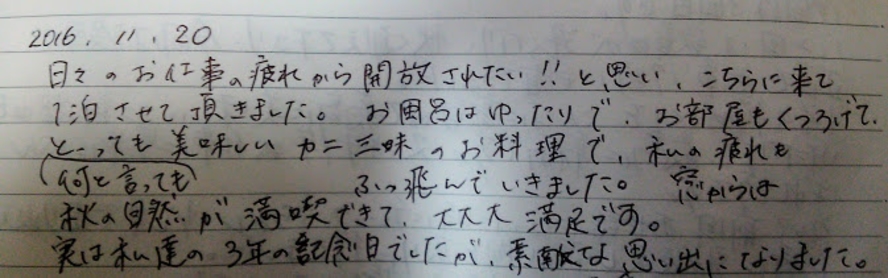 2016.11.20
日々のお仕事の疲れから開放されたい!!と思い、こちらに来て
1泊させて頂きました。お風呂はゆったりで、お部屋もくつろげて、
とーっても美味しいカニ三味のお料理で、私の疲れも
(何と言っても ふっ飛んでいきました。 窓からは
秋の自然が満喫できて、大大大満足です。
実は私達の3年の記念日でしたが、素敵な思い出になりました。